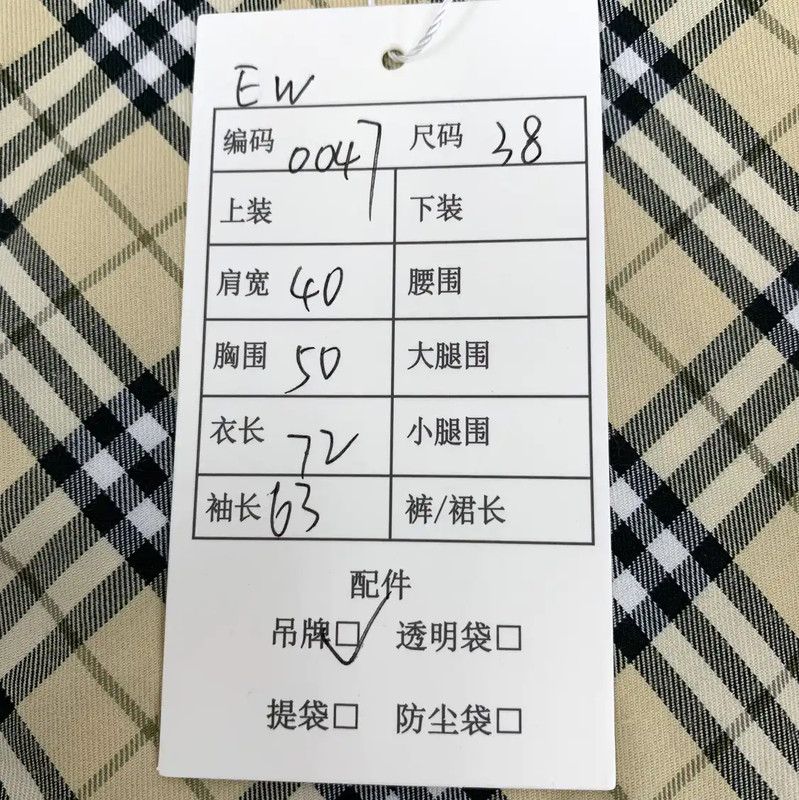 EW
编码 0047 尺码 38
上装 下装
肩宽 40 腰围
胸围 50 大腿围
衣长 72 小腿围
袖长 63 裤/裙长
配件
吊牌☑ 透明袋□
提袋□ 防尘袋□